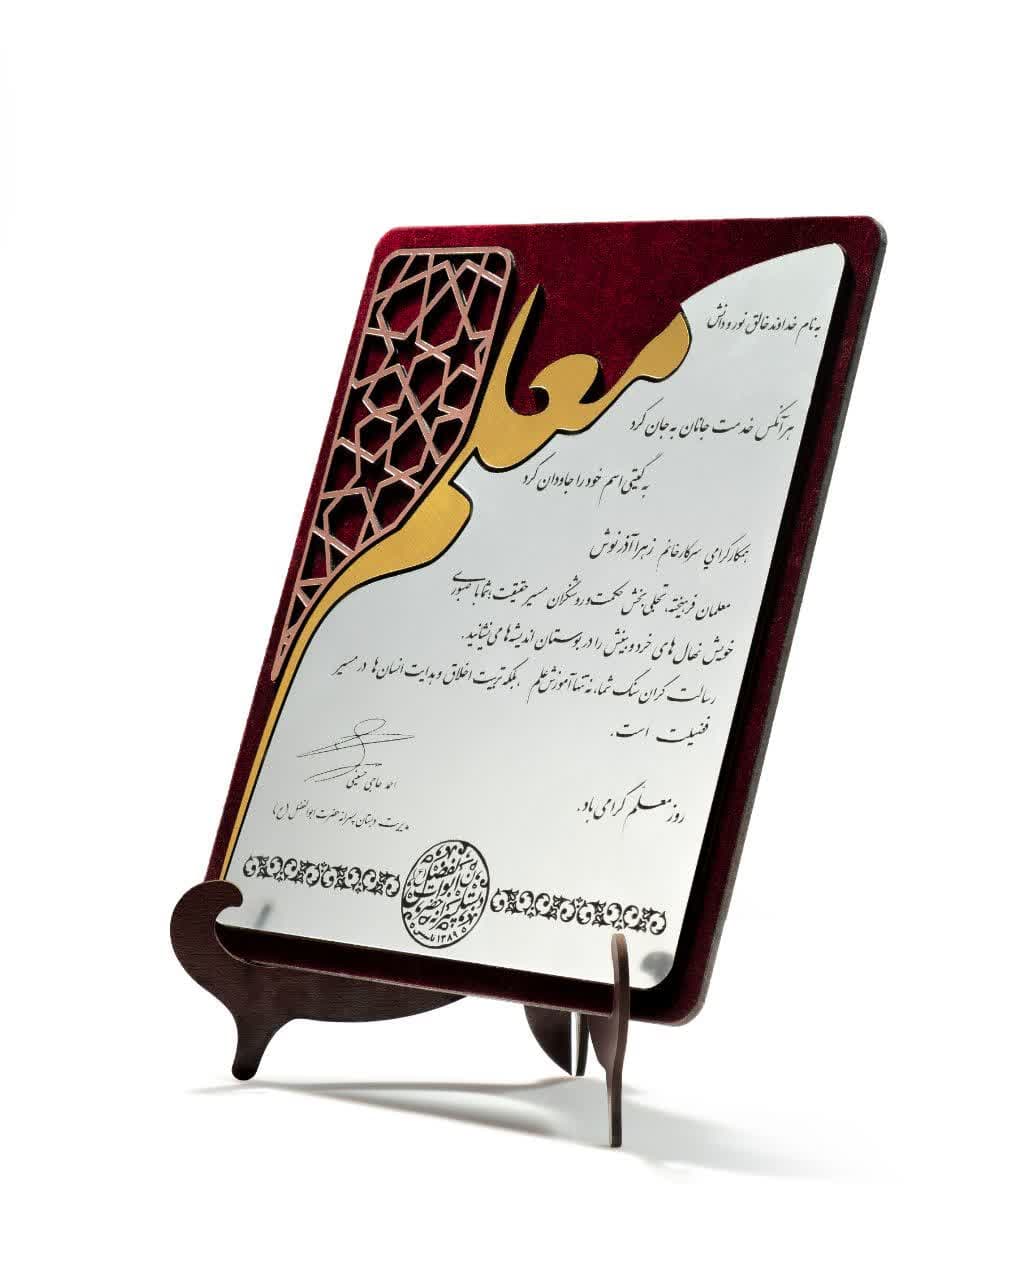 به نام خداوند خالق نور و دانش
معلم
هر آنکس خدمت جانان به جان کرد
به گیتی اسم خود را جاودان کرد
همکار گرامی سرکار خانم زهرا آذرنوش
معلمان فرهیخته، تجلی بخش حکمت و روشنگران مسیر حقیقت، شما با صبوری
خویش نهال های خرد و بینش را در بوستان اندیشه ها می نشانید.
رسالت گران سنگ شما، نه تنها آموزش علم، بلکه تربیت اخلاق و هدایت انسان ها در مسیر
فضیلت است.
روز معلم گرامی باد.
احمد حاجی حسینی
مدیریت دبستان پسرانه حضرت ابوالفضل (ع)
دبستان پسرانه حضرت ابوالفضل
تاسیس ۱۳۸۹